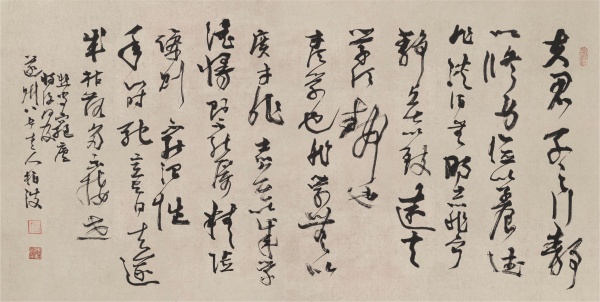 夫君子之行静
以修身俭以养德
非淡泊无明志非宁
静无以致远夫
学须静也
才学也非学无以
广才非志无以成学
淫慢则不能励精险
躁则不能治性
年与时驰意与日去遂
成枯落多不接世
悲守穷庐
将复何及
老人